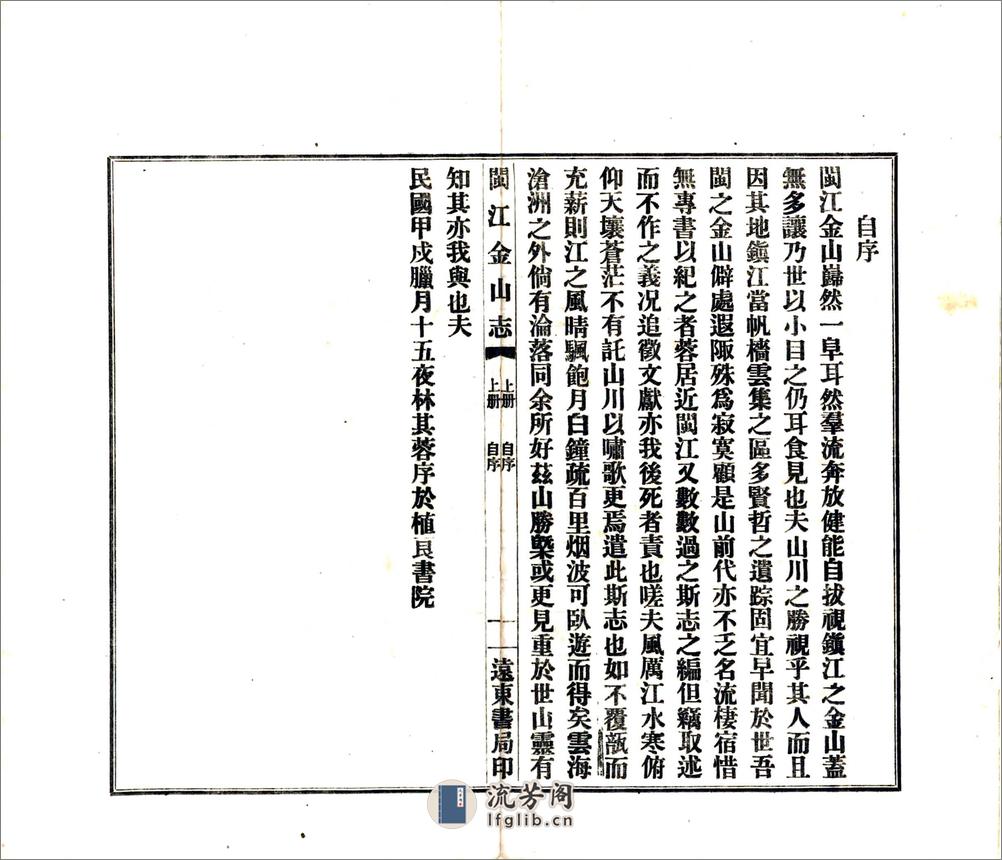 自序
閩江金山巋然一阜耳然羣流奔放健能自拔視鎭江之金山蓋
無多讓乃世以小目之仍耳食見也夫山川之勝視乎其人而且
因其地鎭江當帆檣雲集之區多賢哲之遺踪固宜早聞於世吾
閩之金山僻處遐陬殊爲寂寞顧是山前代亦不乏名流棲宿惜
無專書以紀之者蓉居近閩江又數數過之斯志之編但竊取述
而不作之義况追徵文獻亦我後死者責也嗟夫風厲江水寒俯
仰天壤蒼茫不有託山川以嘯歌更焉遣此斯志也如不覆瓿而
充薪則江之風晴颿飽月白鐘疏百里烟波可臥遊而得矣雲海
滄洲之外倘有淪落同余所好茲山勝槩或更見重於世山靈有
閩江金山志
上册 自序
上册 自序
一
遠東書局印
知其亦我與也夫
民國甲戍臘月十五夜林其蓉序於植艮書院
流芳阁
lfglib.cn